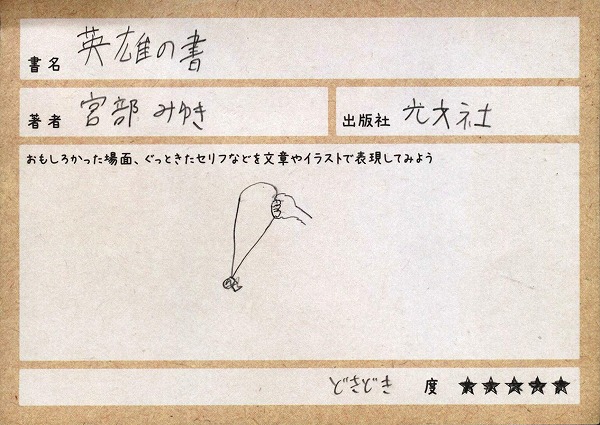 書名 英雄の書
著者 宮部 みゆき 出版社 光文社
おもしろかった場面、ぐっときたセリフなどを文章やイラストで表現してみよう
度 ★★★★★